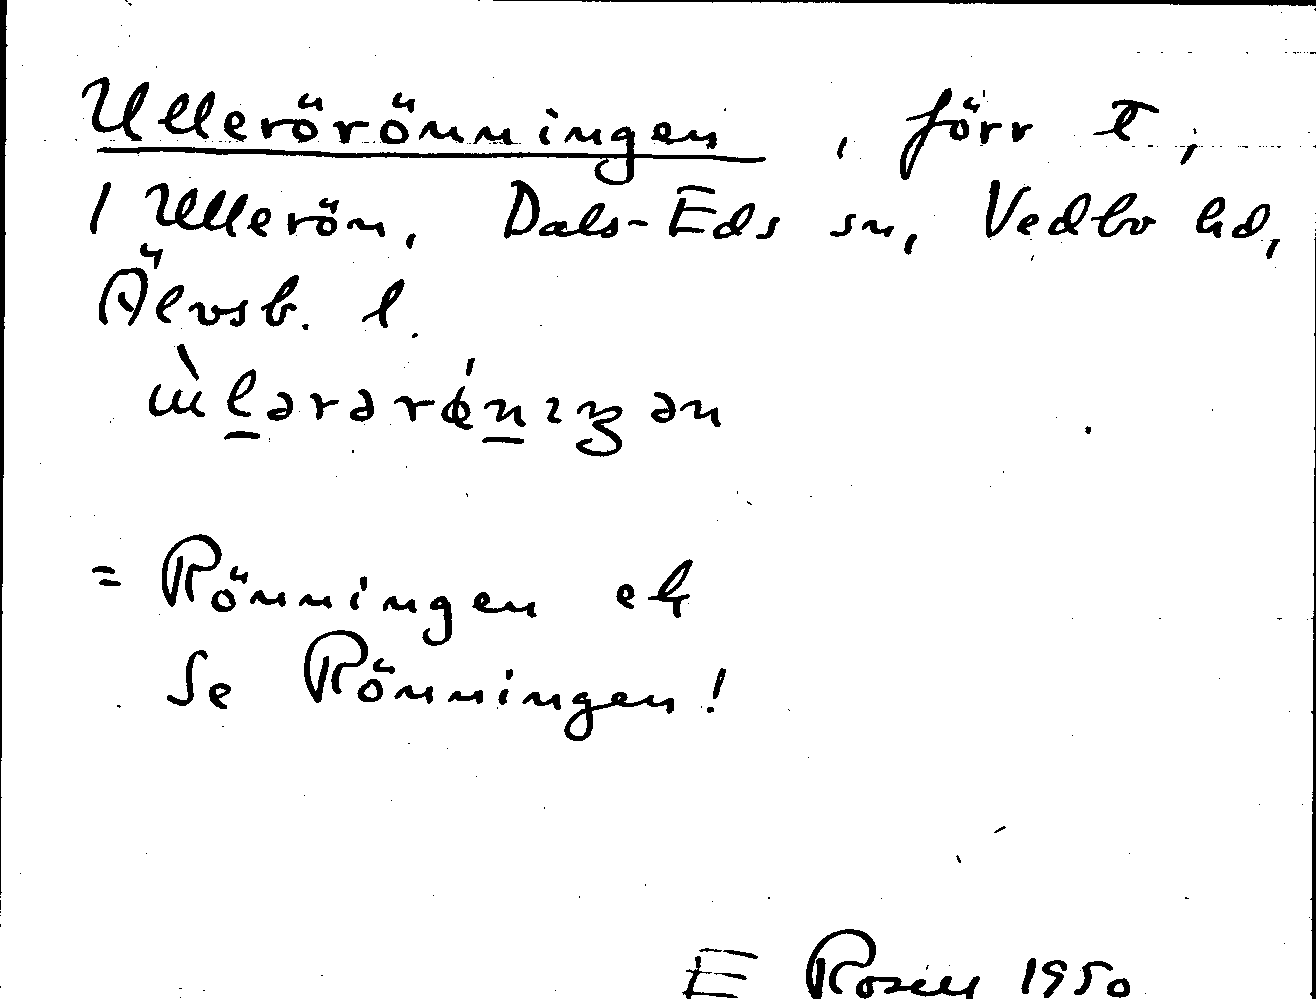 Ullerörönningen, förr t,
i Ullerön, Dals-Eds sn, Vedbo hd,
Älvsb. l.
= Rönningen ek
Se Rönningen!
E Rosell 1950